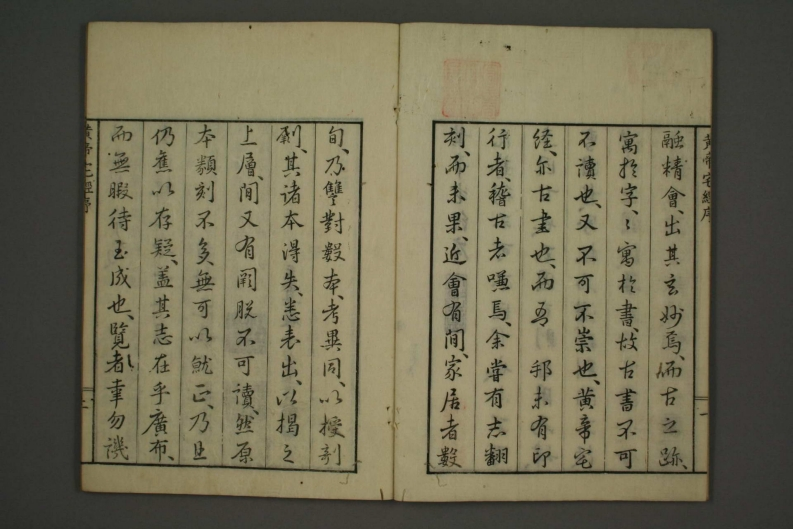 黄帝宅經序
融精會、出其玄妙焉、而古之跡、
寓於字、〻寓於書、故古書不可
不讀也、又不可不崇也、黄帝宅
經、亦古書也、而吾 邦未有印
行者、稽古者嗛焉、余嘗有志翻
刻、而未果、近會有間、家居者數
旬、乃讐對數本、考異同、以授剞
劂、其諸本得失、悉表出、以揭之
上層、間又有闕脱不可讀、然原
本類刻不多、無可以就正、乃且
仍舊以存疑、蓋其志在乎廣布、
而無暇待玉成也、覽者幸勿譏